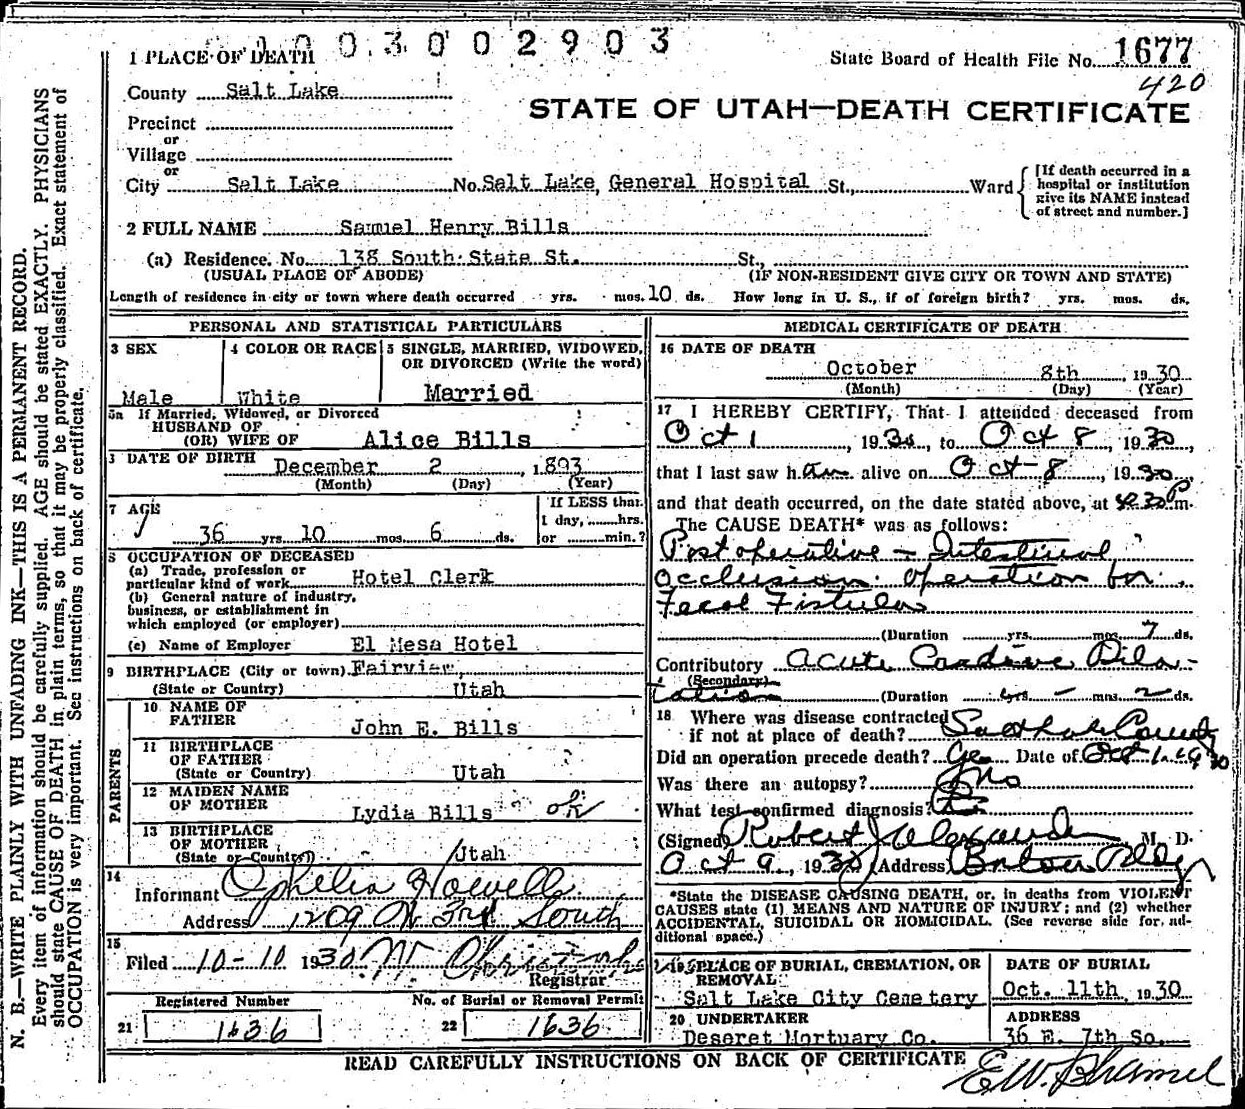 0 0 3 0 0 2 9 0 3
1 PLACE OF DEATH
State Board of Health File No. 1677
420
County Salt Lake
STATE OF UTAH—DEATH CERTIFICATE
Precinct
or
Village
or
City Salt Lake No. Salt Lake, General Hospital St., Ward
[If death occurred in a hospital or institution give its NAME instead of street and number.]
2 FULL NAME Samuel Henry Bills
(a) Residence. No. 138 South State St. St.,
(USUAL PLACE OF ABODE) (IF NON-RESIDENT GIVE CITY OR TOWN AND STATE)
Length of residence in city or town where death occurred yrs. mos. 10 ds. How long in U. S., if of foreign birth? yrs. mos. ds.
PERSONAL AND STATISTICAL PARTICULARS
3 SEX
Male
4 COLOR OR RACE
White
5 SINGLE, MARRIED, WIDOWED, OR DIVORCED (Write the word)
Married
5a If Married, Widowed, or Divorced
HUSBAND OF
(OR) WIFE OF Alice Bills
DATE OF BIRTH December 2, 1893
(Month) (Day) (Year)
7 AGE
36 yrs. 10 mos. 6 ds.
If LESS than
1 day, hrs.
or min.?
8 OCCUPATION OF DECEASED
(a) Trade, profession or
particular kind of work Hotel Clerk
(b) General nature of industry,
business, or establishment in
which employed (or employer)
(c) Name of Employer El Mesa Hotel
9 BIRTHPLACE (City or town) Fairview,
(State or Country) Utah
PARENTS
10 NAME OF
FATHER John E. Bills
11 BIRTHPLACE
OF FATHER
(State or Country) Utah
12 MAIDEN NAME
OF MOTHER Lydia Bills OK
13 BIRTHPLACE
OF MOTHER
(State or Country) Utah
14
Informant Ophelia Howells
Address 1209 W 3rd South
15
Filed 10-10 1930
Registrar
Registered Number No. of Burial or Removal Permit
21 1636 22 1636
MEDICAL CERTIFICATE OF DEATH
16 DATE OF DEATH
October 8th, 1930
(Month) (Day) (Year)
17 I HEREBY CERTIFY, That I attended deceased from
Oct 1, 1930, to Oct 8, 1930,
that I last saw him alive on Oct-8, 1930,
and that death occurred, on the date stated above, at P m.
The CAUSE DEATH* was as follows:
Post operative - Intestinal
occlusion. operation for
Fecal Fistula
(Duration yrs. mos. 7 ds.
Contributory acute Cardiac Dila-
(Secondary)
tation (Duration yrs. - mos. 2 ds.
18 Where was disease contracted
if not at place of death? Salt Lake County
Did an operation precede death? Yes Date of Oct 1, 1930
Was there an autopsy? No
What test confirmed diagnosis?
(Signed) Robert J Alexander M. D.
Oct 9, 1930 (Address) Bldg
*State the DISEASE CAUSING DEATH, or, in deaths from VIOLENT
CAUSES state (1) MEANS AND NATURE OF INJURY; and (2) whether
ACCIDENTAL, SUICIDAL OR HOMICIDAL. (See reverse side for additional space.)
19 PLACE OF BURIAL, CREMATION, OR
REMOVAL
Salt Lake City Cemetery
DATE OF BURIAL
Oct. 11th, 1930
20 UNDERTAKER
Deseret Mortuary Co.
ADDRESS
36 E. 7th So.
READ CAREFULLY INSTRUCTIONS ON BACK OF CERTIFICATE
N. B.—WRITE PLAINLY WITH UNFADING INK—THIS IS A PERMANENT RECORD.
Every item of information should be carefully supplied. AGE should be stated EXACTLY. PHYSICIANS
should state CAUSE OF DEATH in plain terms, so that it may be properly classified. Exact statement of
OCCUPATION is very important. See instructions on back of certificate.